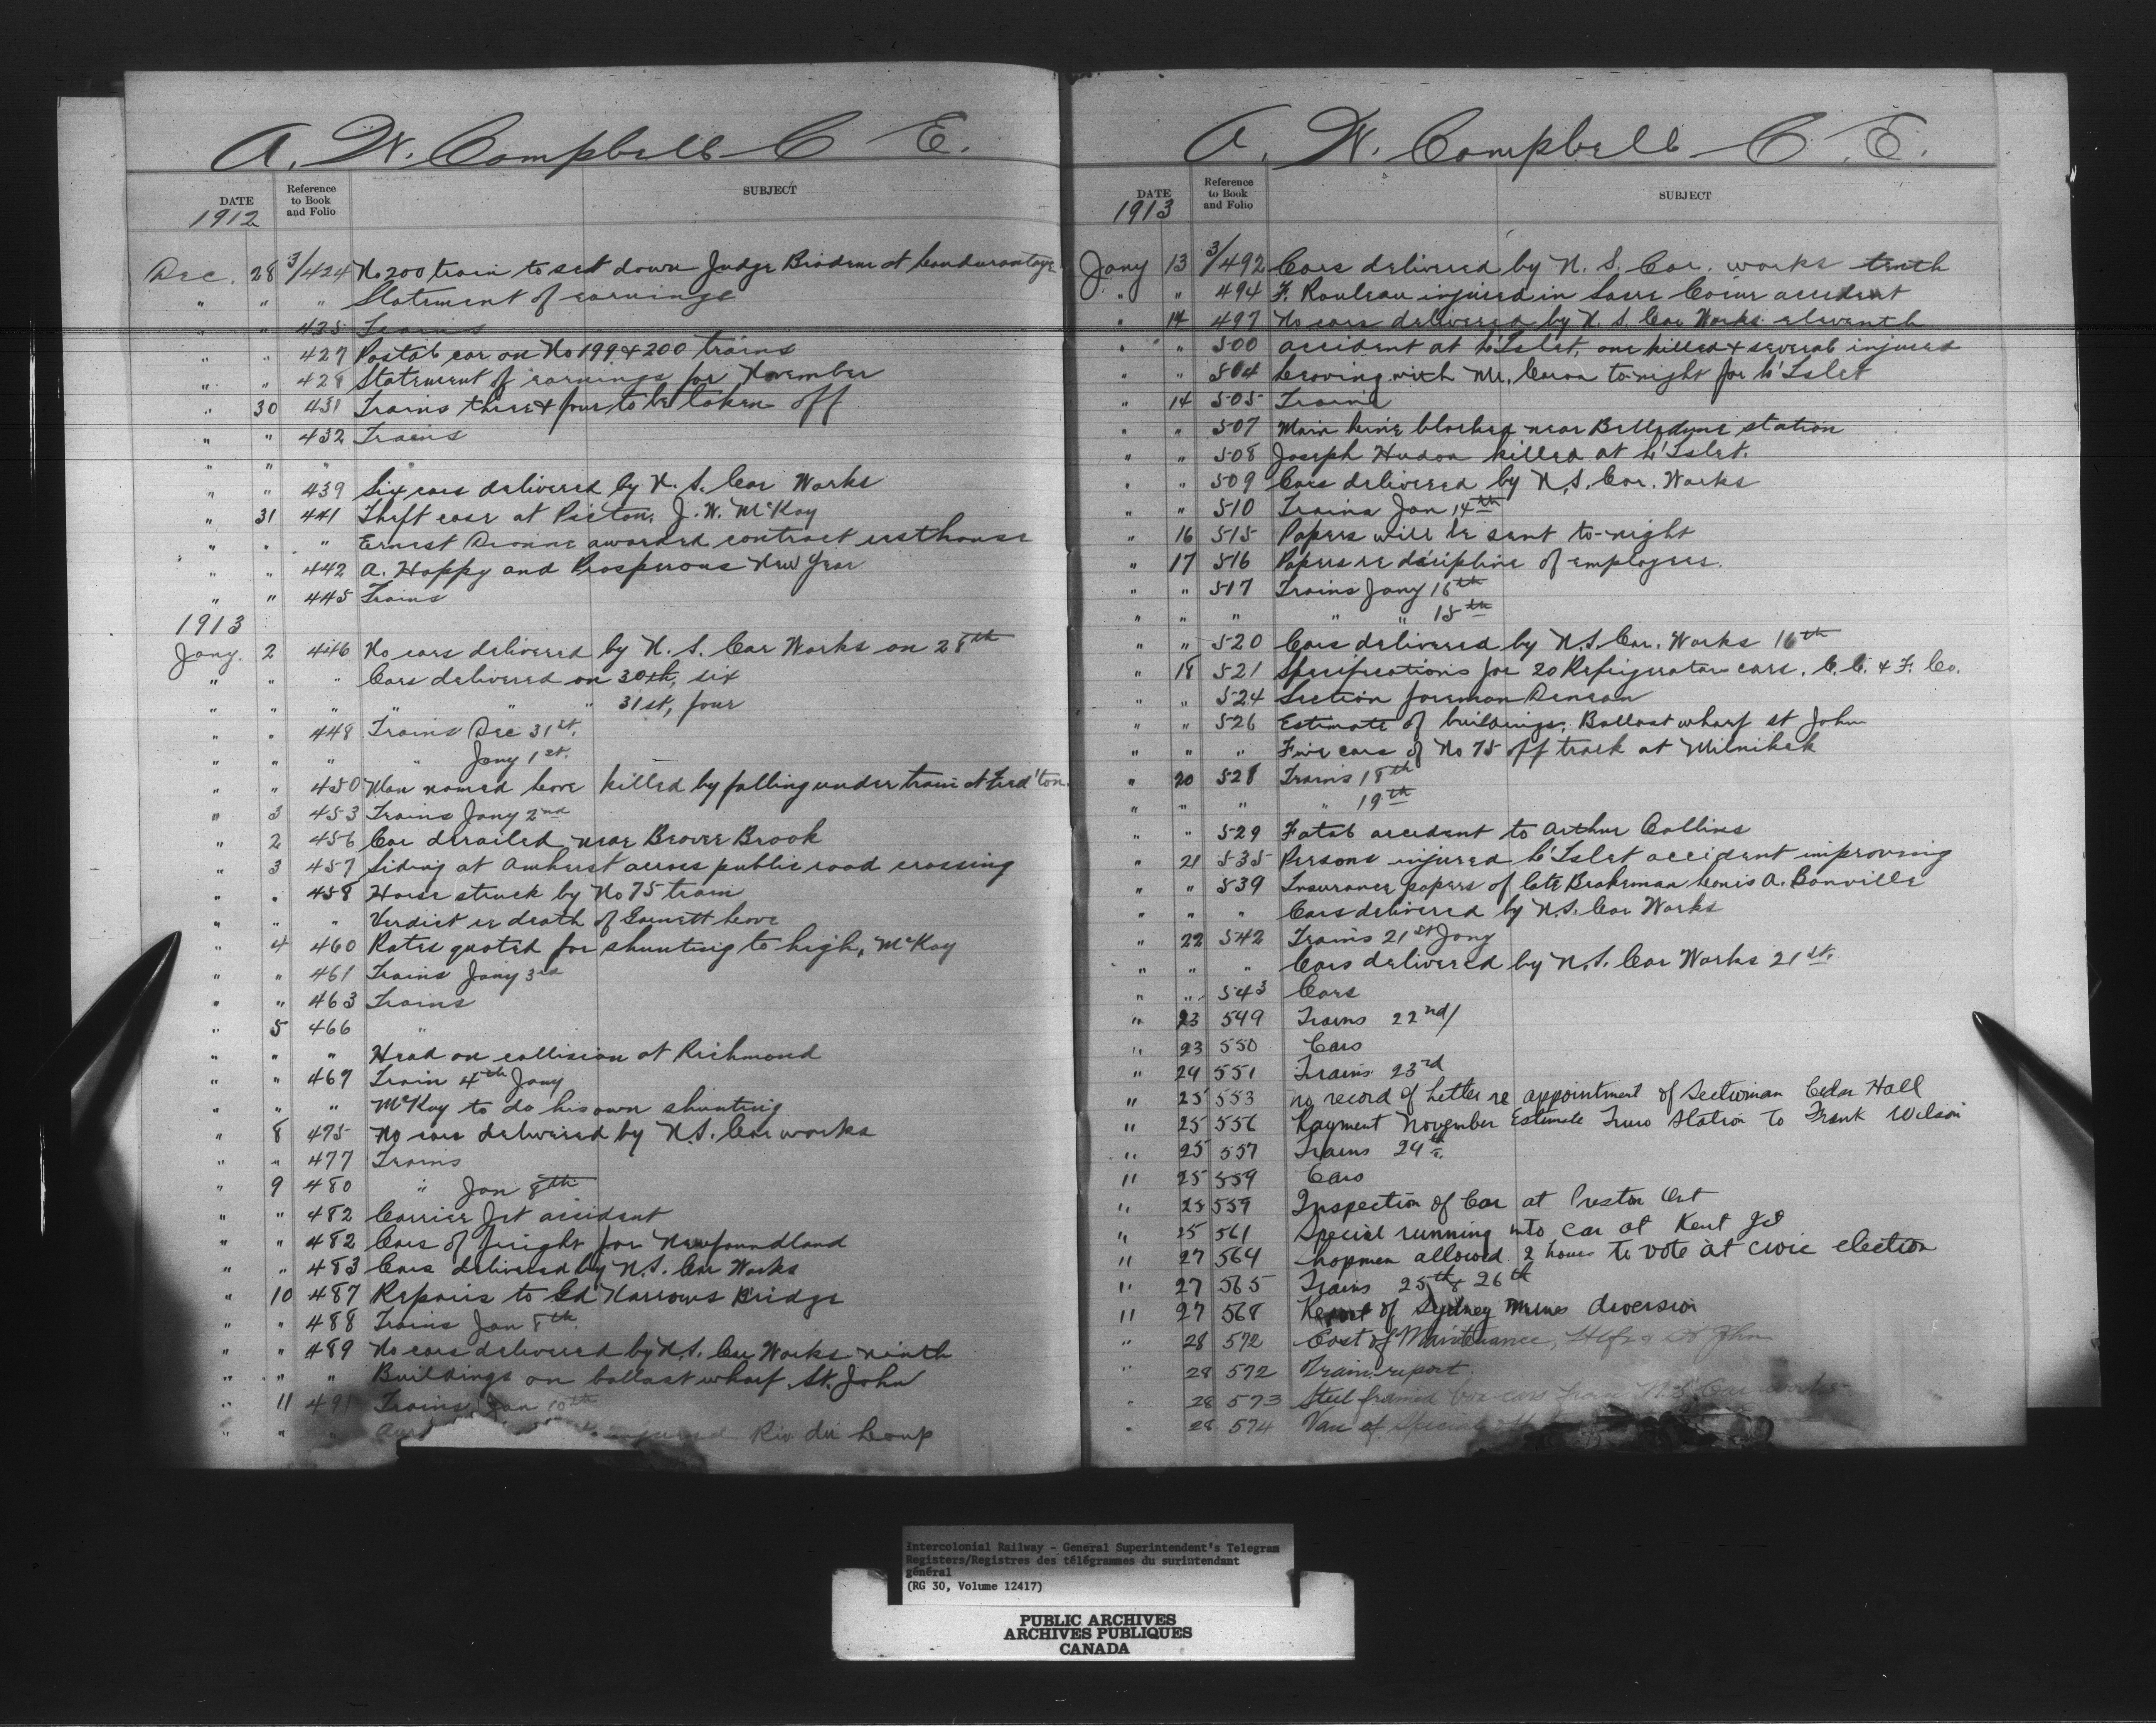 A. W. Campbell C E.
DATE Reference to Book and Folio SUBJECT
1912
Dec. 28 3/424 No 200 train to set down Judge at
" " " Statement of earnings
" " 425 Trains
" " 427 Postal car on No 199 & 200 trains
" " 428 Statement of earnings for November
" 30 431 Trains three & four to be taken off
" " 432 Trains
" " " "
" " 439 Six cars delivered by N. S. Car Works
" 31 441 Theft case at Pictou, J. W. McKay
" " " Ernest Dionne awarded contract resthouse
" " 442 A. Happy and Prosperous New Year
" " 445 Trains
1913
Jany. 2 446 No cars delivered by N. S. Car Works on 28th
" " " Cars delivered on 30th, six
" " " " " " 31st, four
" " 448 Trains Dec 31st.
" " " " Jany 1st.
" " 450 Man named Lowe killed by falling under train at Fred'ton.
" 3 453 Trains Jany 2nd
" 2 456 Car derailed near Beaver Brook
" 3 457 Siding at Amherst across public road crossing
" " 458 Horse struck by No 75 train
" " " Verdict re death of Garnett Lowe
" 4 460 Rates quoted for shunting to high, McKay
" " 461 Trains Jany 3rd
" " 463 Trains
" 5 466 "
" " " Head on collision at Richmond
" " 469 Train 4th Jany
" " " McKay to do his own shunting
" 8 475 No cars delivered by N. S. Car works
" " 477 Trains
" 9 480 " Jan 8th
" " 482 Carrier Jct accident
" " 482 Cars of freight for Newfoundland
" " 483 Cars delivered by N. S. Car Works
" 10 487 Repairs to Gd Narrows Bridge
" " 488 Trains Jan 8th.
" " 489 No cars delivered by N. S. Car Works ninth
" " " Buildings on ballast wharf St. John
" 11 491 Trains Jan 10th
" " " injured Riv. du Loup
A. W. Campbell C. E.
DATE Reference to Book and Folio SUBJECT
1913
Jany 13 3/492 Cars delivered by N. S. Car. works tenth
" " 494 F. Rouleau injured in Sacre Coeur accident
" 14 497 No cars delivered by N. S. Car Works eleventh
" " 500 accident at L'Islet, one killed & several injured
" " 504 Leaving with Mr. Caron to-night for L'Islet
" 14 505 Trains
" " 507 Main line blocked near Belledune station
" " 508 Joseph Hudon killed at L'Islet.
" " 509 Cars delivered by N. S. Car. Works
" " 510 Trains Jan 14th
" 16 515 Papers will be sent to-night
" 17 516 Papers re discipline of employees.
" " 517 Trains Jany 16th
" " " " " 15th
" " 520 Cars delivered by N. S. Car. Works 16th
" 18 521 Specifications for 20 Refrigerator cars. C. C. & F. Co.
" " 524 Section foreman
" " 526 Estimate of buildings, Ballast wharf St John
" " " Five cars of No 75 off track at Milnikek
" 20 528 Trains 18th
" " " " 19th
" " 529 Fatal accident to Arthur Collins
" 21 535 Persons injured L'Islet accident improving
" " 539 Insurance papers of late Brakeman Louis A. Bonville
" " " Cars delivered by N. S. Car Works
" 22 542 Trains 21st Jany
" " " Cars delivered by N. S. Car Works 21st.
" " 543 Cars
" 23 549 Trains 22nd/
" 23 550 Cars
" 24 551 Trains 23rd
" 25 553 no record of Letter re appointment of Sectionman Cedar Hall
" 25 556 Payment November Estimate Truro Station to Frank Wilson
" 25 557 Trains 24th.
" 25 559 Cars
" 25 559 Inspection of Car at Preston Ont
" 25 561 Special running into car at Kent Jct
" 27 564 Shopmen allowed 2 hours to vote at civic election
" 27 565 Trains 25th & 26th
" 27 568 Report of Sydney Mines diversion
" 28 572 Cost of Maintenance, Hlfx & St John
" 28 572 Train report.
" 28 573 Steel framed box cars from N. S. Car works
" 28 574 Van of Special off
Intercolonial Railway - General Superintendent's Telegram
Registers/Registres des télégrammes du surintendant
général
(RG 30, Volume 12417)
PUBLIC ARCHIVES
ARCHIVES PUBLIQUES
CANADA